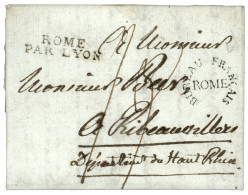 ROME
PAR LYON
A Monsieur
BUREAU FRANÇAIS
ROME
Monsieur
A Ribeauvillers
Département du Haut Rhin